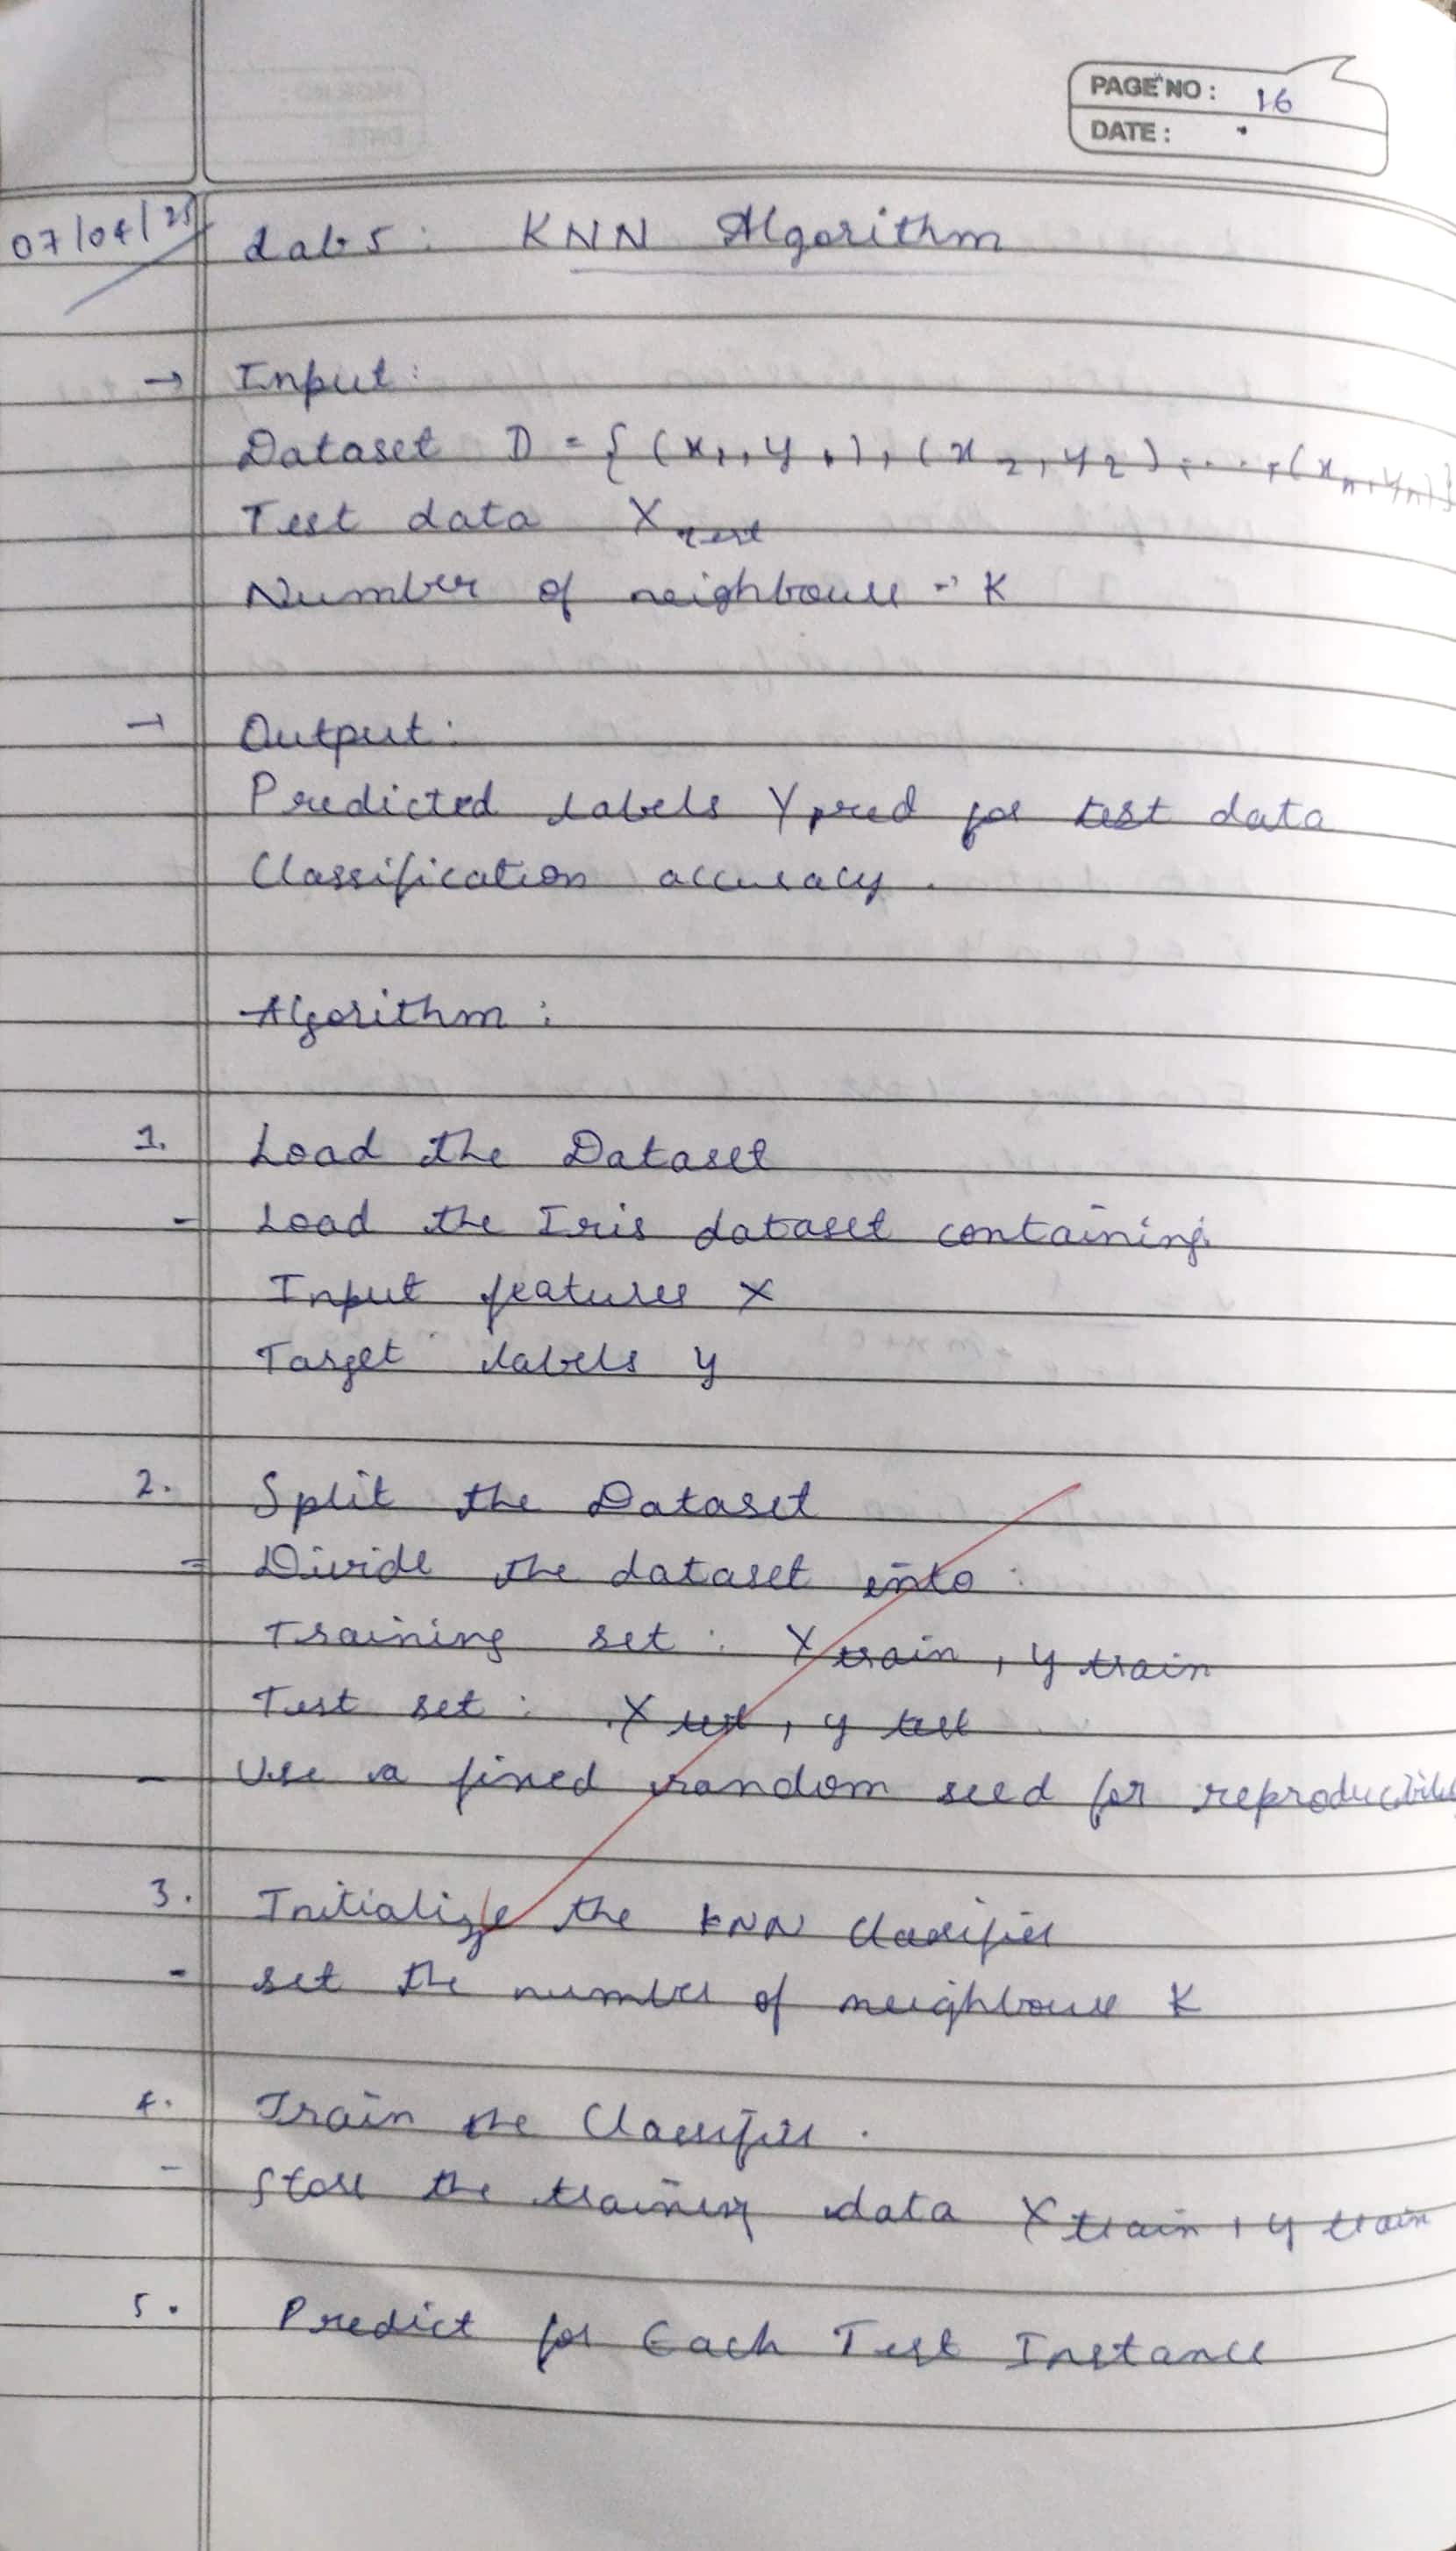 PAGE NO: 16
DATE:
07/04/25
Lab 5: KNN Algorithm
→ Input:
Dataset D = {(x₁, y₁), (x₂, y₂), ..., (xₙ, yₙ)}
Test data X test
Number of neighbours → K
→ Output:
Predicted labels Y pred for test data
Classification accuracy.
Algorithm:
1. Load the Dataset
- Load the Iris dataset containing
Input features X
Target labels y
2. Split the Dataset
- Divide the dataset into:
Training set: X train, y train
Test set: X test, y test
- Use a fixed random seed for
3. Initialize the KNN Classifier
- set the number of neighbours K
4. Train the Classifier.
- Store the training data X train, y train
5. Predict for Each Test Instance